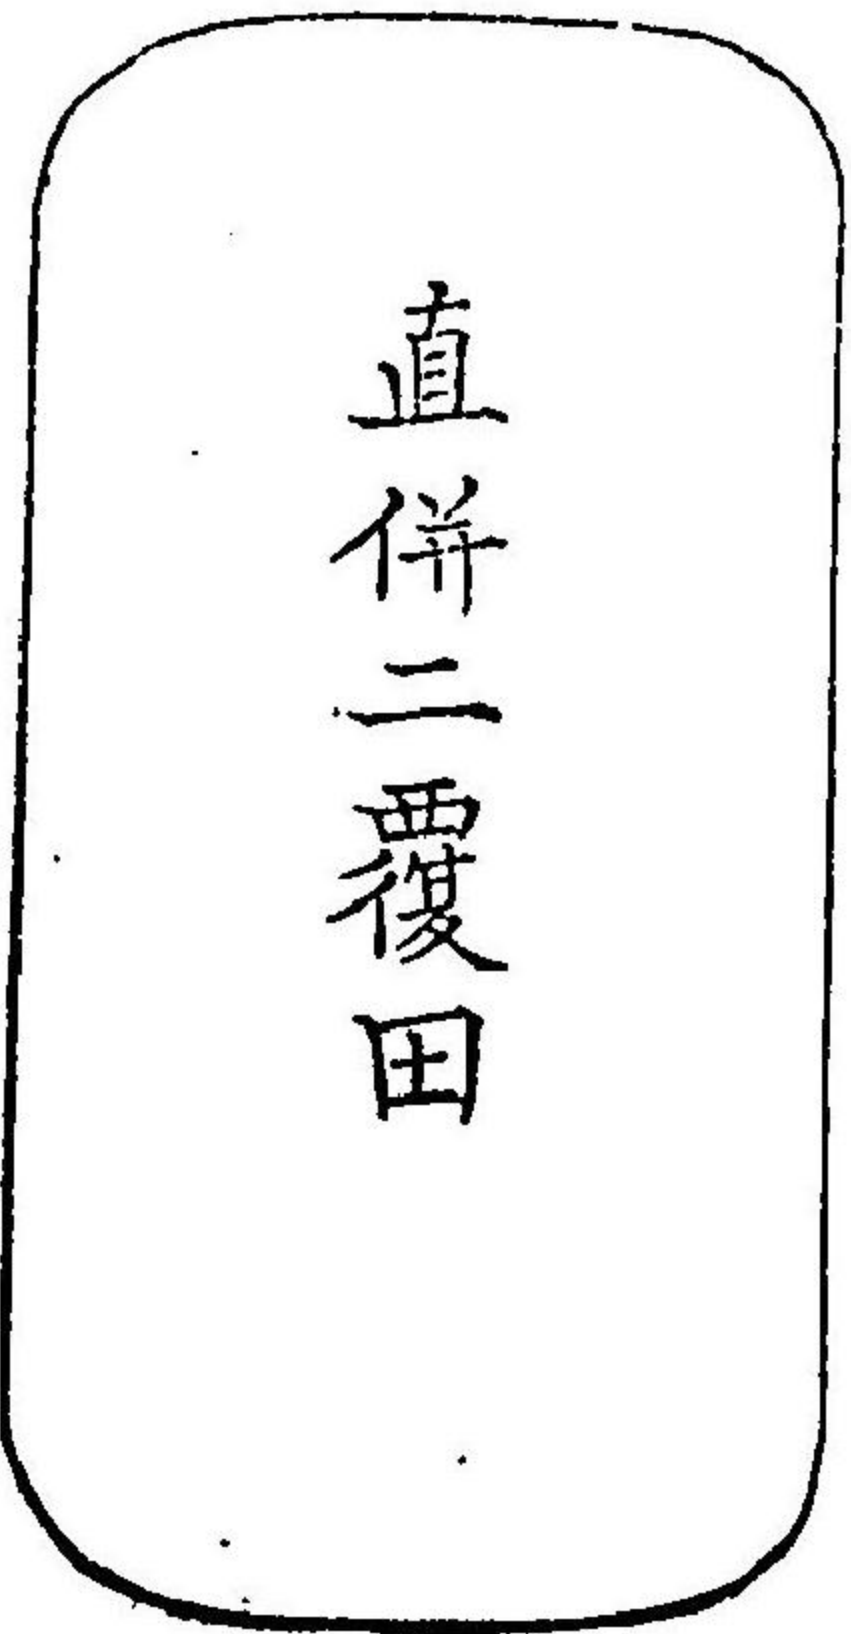 直併二覆田